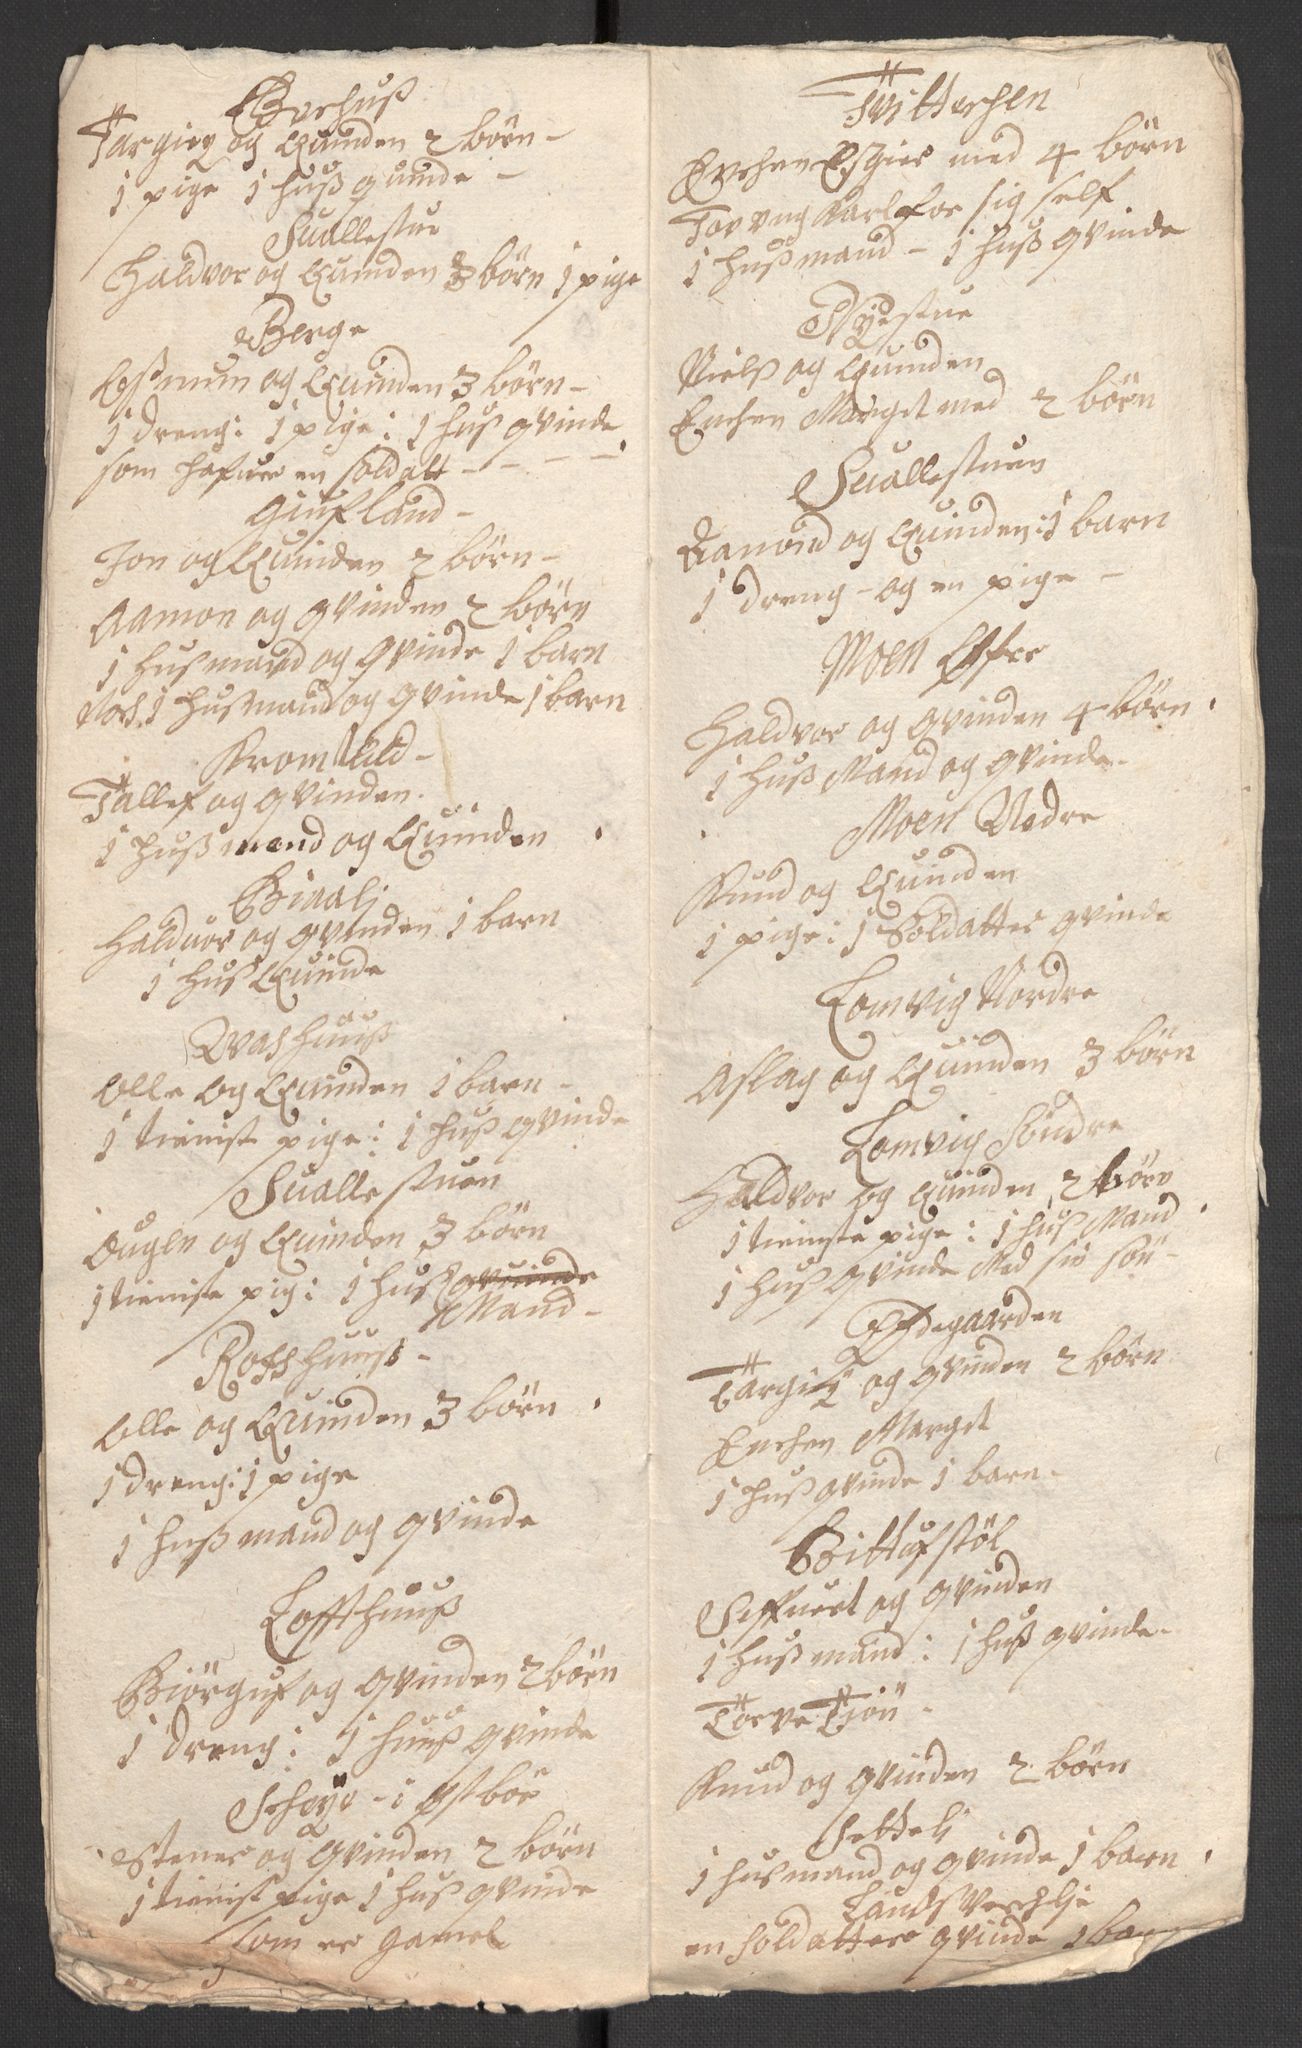 Berhuß
Targier og Quinden 2 börn -
1 pige 1 huß quinde -
Suallestue
Haldvor og Quinden 3 börn 1 pige
Berge
og Quinden 3 börn -
1 dreng: 1 pige: 1 huß gvinde
som hafuer en soldatt - - - -
Giufland -
Jon og Quinden 2 börn -
Aamon og gvinden 2 börn
1 husmand og gvinde 1 barn
Noch 1 husmand og gvinde 1 barn
Kromlid -
Tallef og gvinden.
1 hußmand og Quinden
Biaalj
Halduor og gvinden 1 barn
1 huß Quinde
Washuuß
Olle og Quinden 1 barn -
1 tienist pige: 1 huß gvinde
Suallestuen
Ougen og Quinden 3 börn
1 tieniste pig: 1 huß gvuinde
Mand -
Roßhuuß -
Olle og Quinden 3 börn
1 dreng: 1 pige
1 hußmand og gvinde
Loffthuuß
Biörguf og gvinden 2 börn
1 dreng: 1 huuß gvinde
Scheye - i Østbör
Stener og gvinden 2 börn
1 tienist pige 1 huß gvinde
som er gamel
Tvitterhen
Enchen Esgier med 4 börn
Tov ung karl for sig self
1 hußmand - 1 huß gvinde
Nyestue
Nielß og Quinden
Enchen Marget med 2 börn
Suallestuen
Aamond og Quinden: 1 barn
1 dreng - og en pige -
Moen Øfre
Haldvor og gvinden 4 börn
1 huß Mand og gvinde -
Moen Nedre
Knud og Quinden
1 pige: 1 Soldatter gvinde
Lomvig Nordre
Aslag og Quinden 3 börn
Lomvig Söndre
Haldvor og Quinden 2 börn
1 tieniste pige: 1 huß Mand
1 huß gvinde Med sin sön -
Ødegaarden
Targier og gvinden 2 börn
Enchen Marget
1 huß gvinde 1 barn -
Bittufstöl
Seffuert og gvinden
1 hußmand: 1 huß gvinde -
Torve Tiön -
Knud og gvinden 2 börn
Settelj
1 husmand og gvinde 1 barn
Landsverchlje
en soldatters gvinde 1 barn